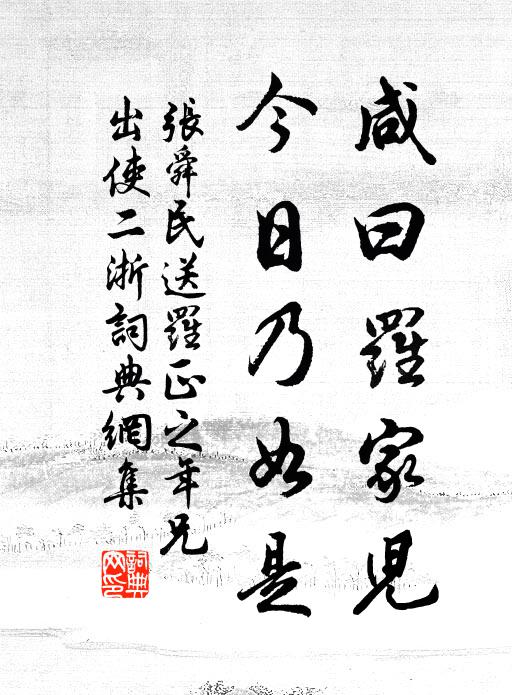 咸曰羅家兒
今日乃如是
張舜民送羅正之年兄
出使二浙詞典網集
詞典
网印